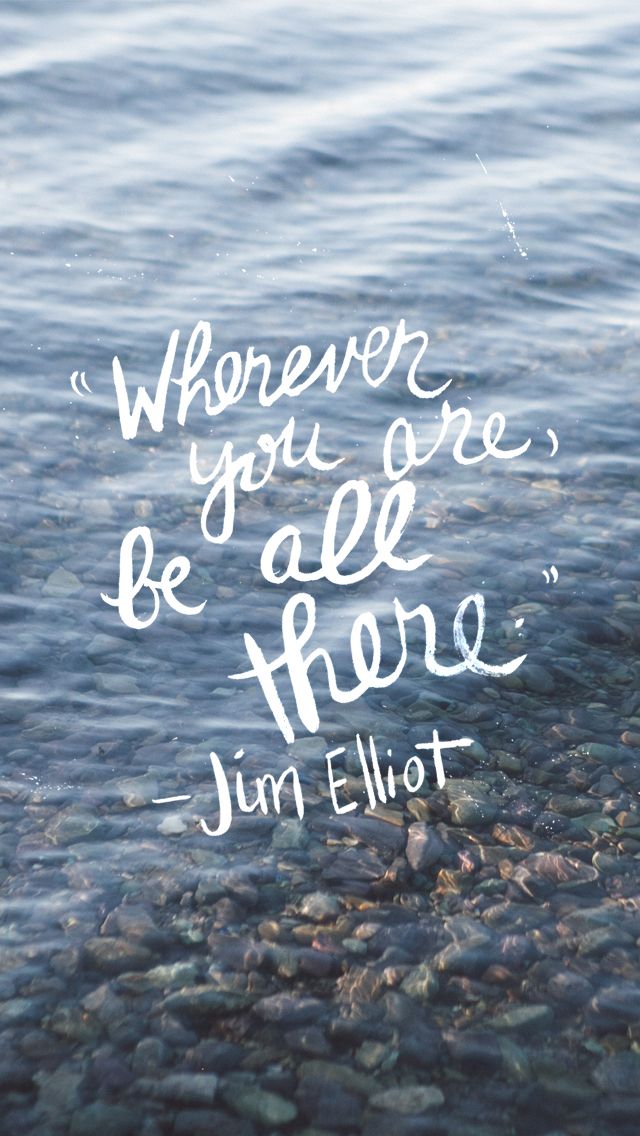 “Wherever
you are,
be all
there.”
–Jim Elliot